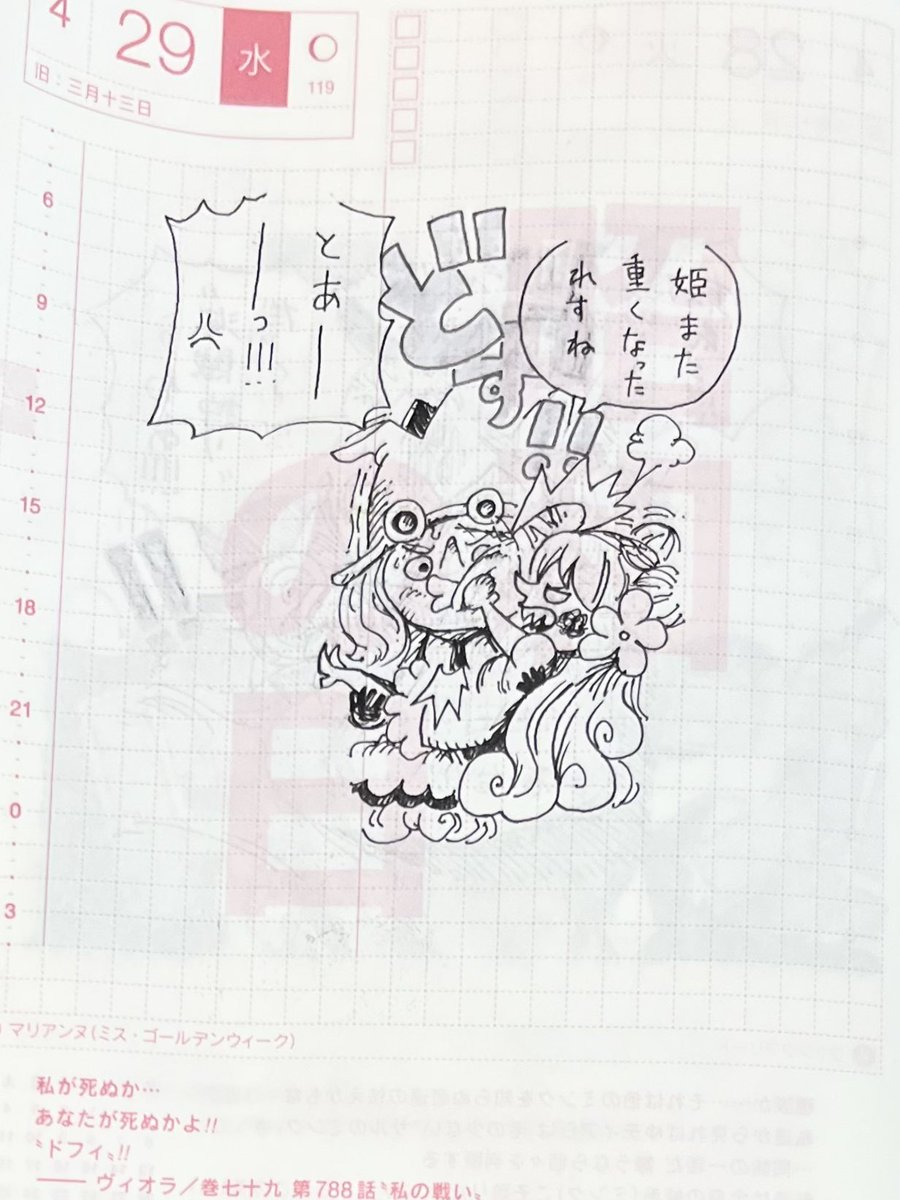 4
29
水
119
旧：三月十三日
姫また
重くなった
れすね
どすっ!!
とあー
ーっ!!!
6
9
12
15
18
21
0
3
マリアンヌ(ミス・ゴールデンウィーク)
私が死ぬか…
あなたが死ぬかよ!!
ドフィ!!
── ヴィオラ／巻七十九 第788話〝私の戦い〟